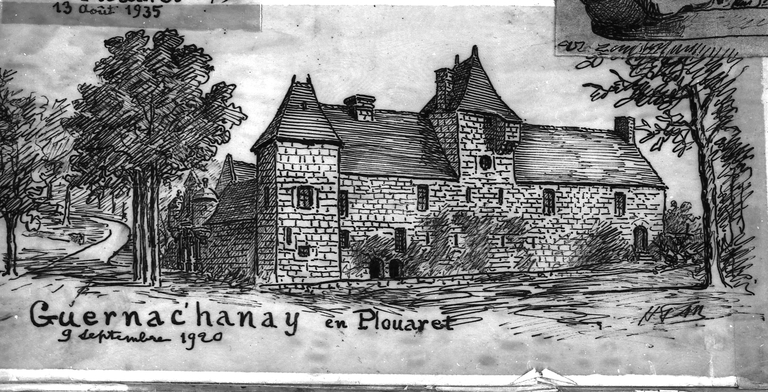 13 août 1935
Guernac'hanay en Plouaret
9 septembre 1920